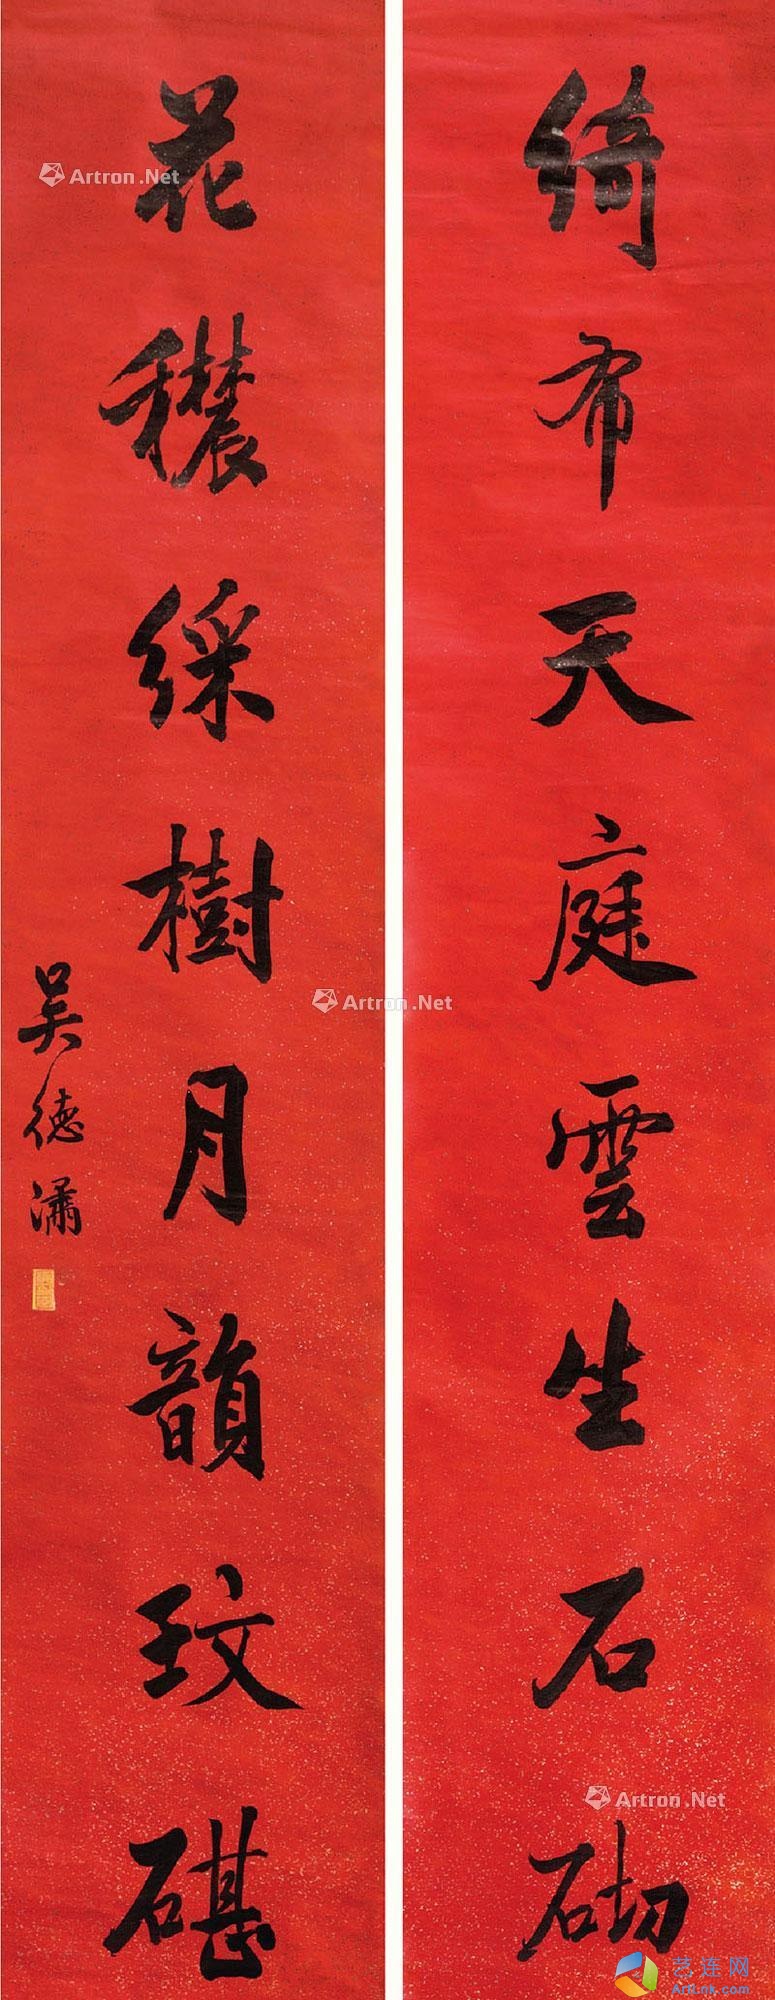 綺布天庭雲生石砌
花穠綵樹月韻玟碪
吳德潚
Artron.Net
Artron.Net
Artron.Net
艺连网
ArtLnk.com